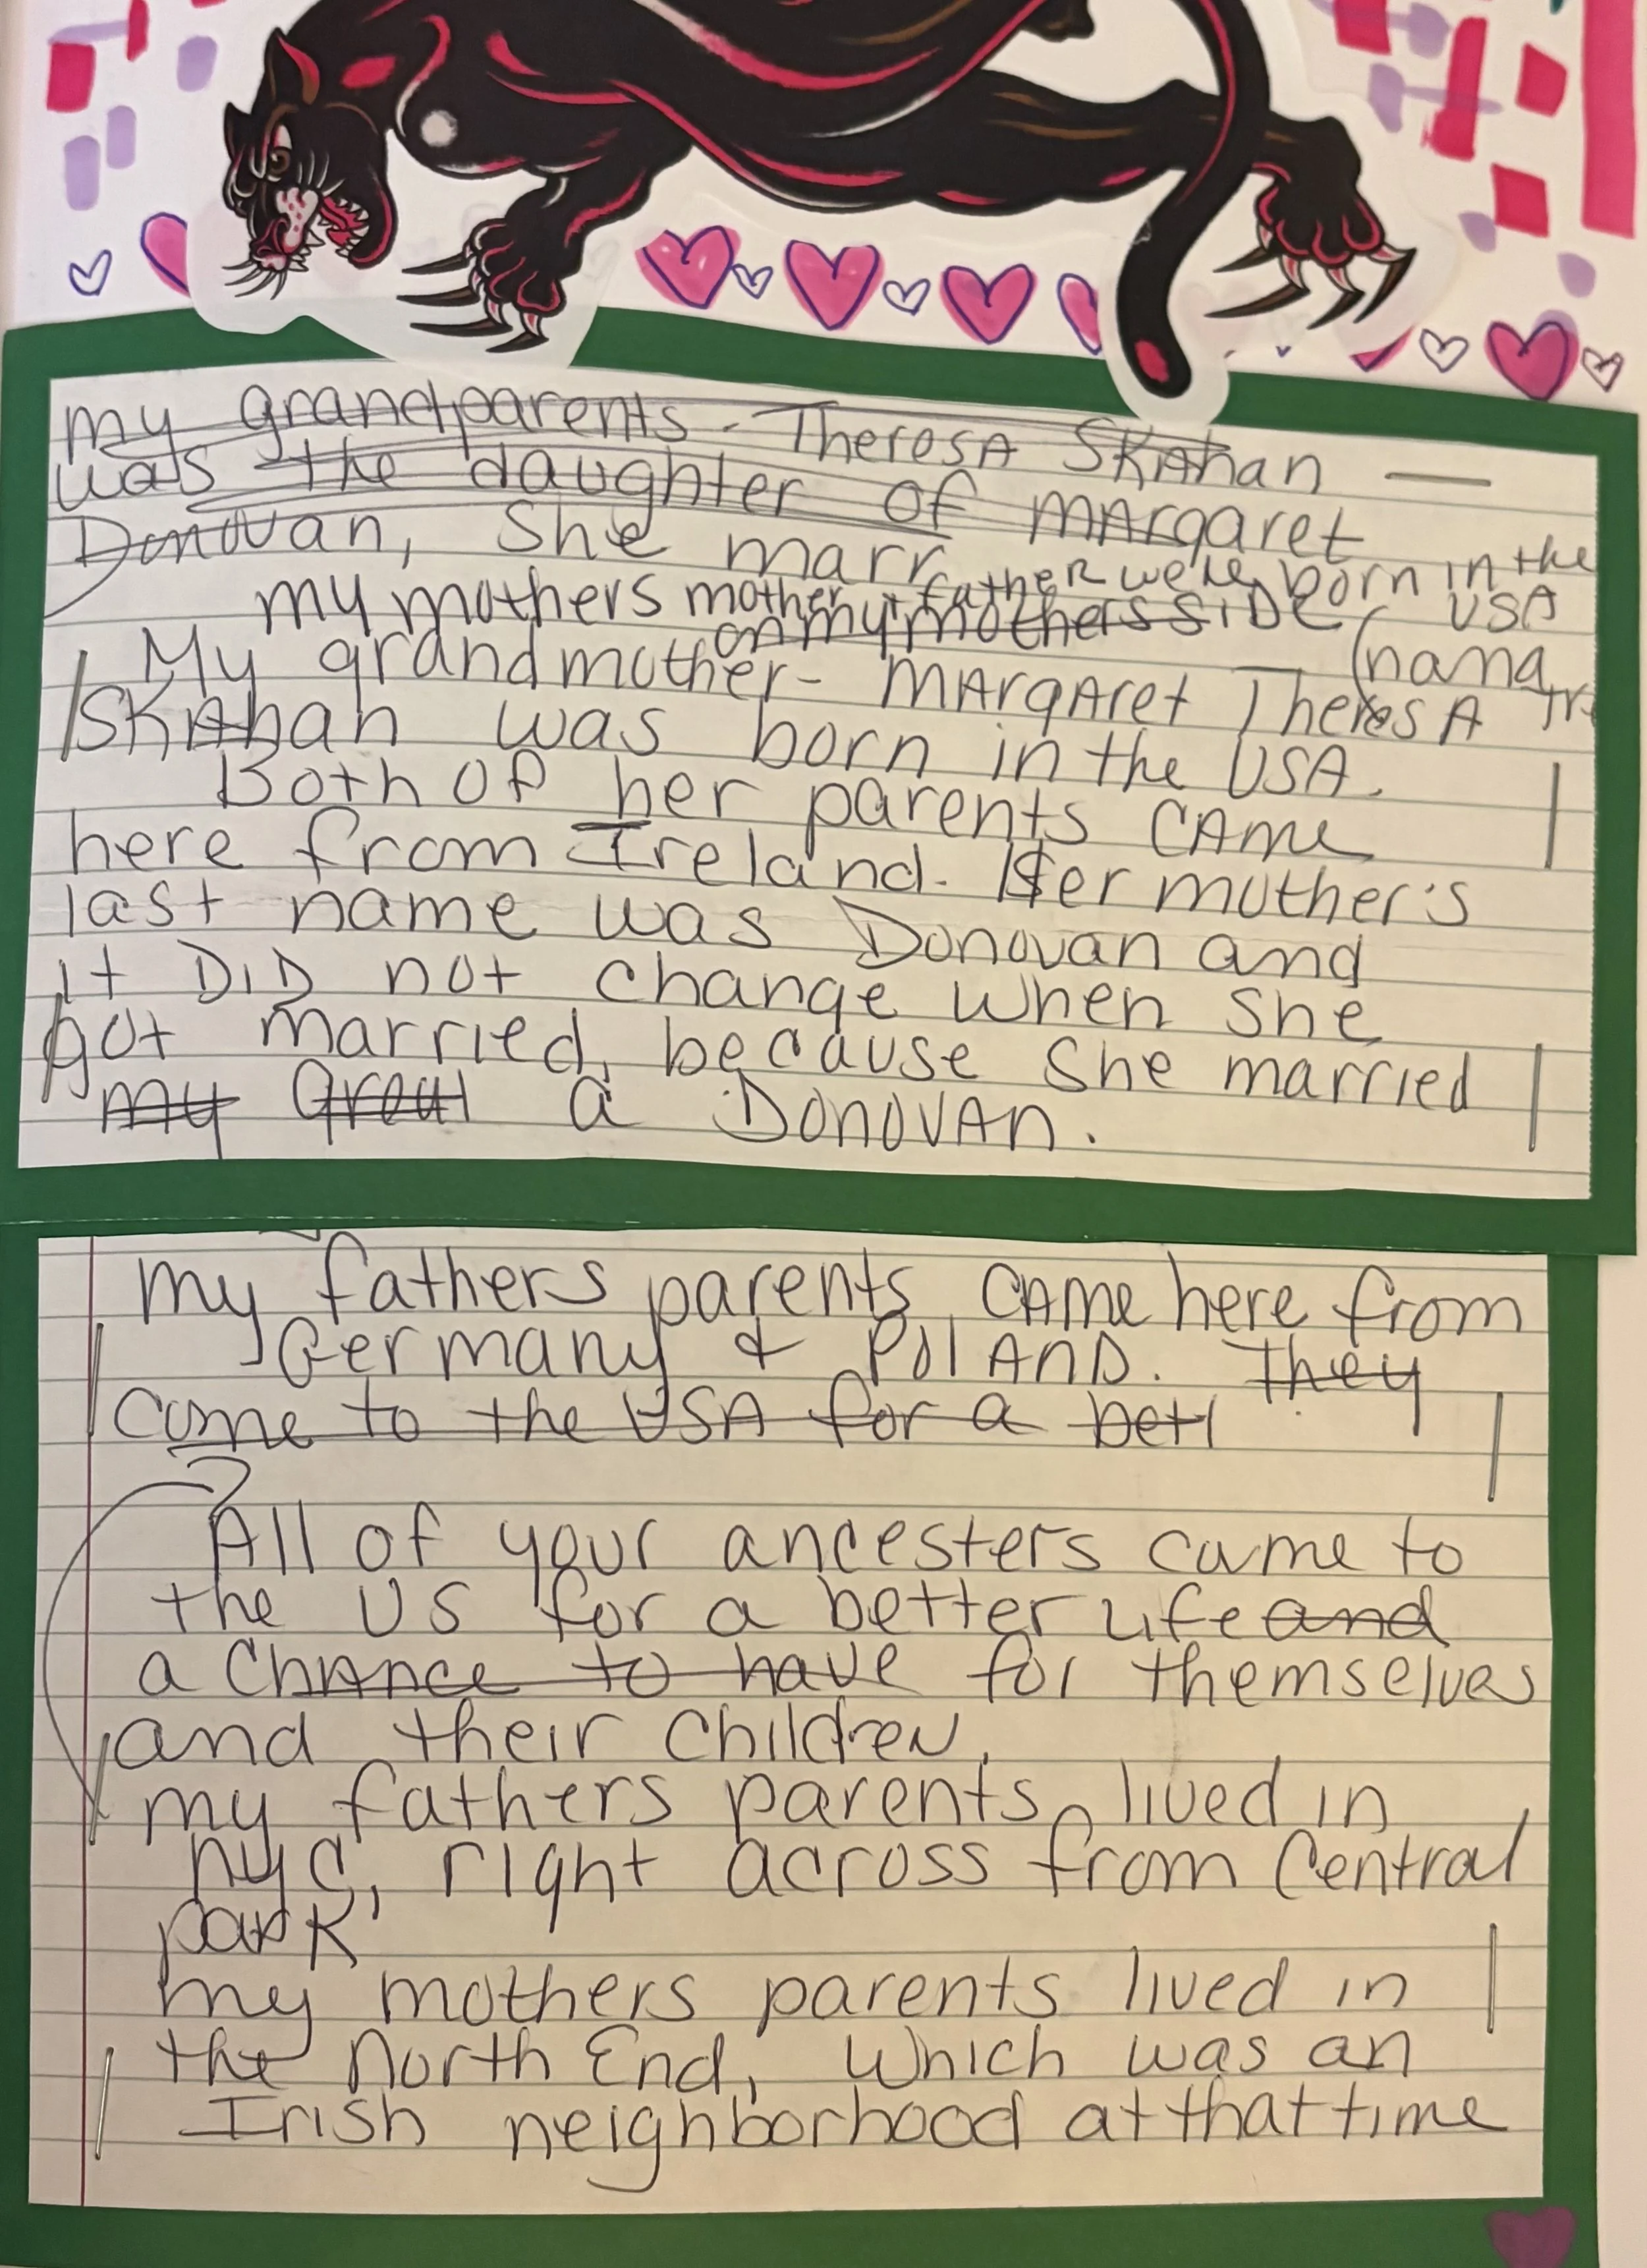 my grandparents - Theresa Skahan —
was the daughter of Margaret
Donovan, She marr
my mothers mother + father were born in the USA
on my mothers SIDE (nana
My grandmother - MArgAret TheresA
SKAhan was born in the USA.
Both OF her parents CAme
here from Ireland. Her mother's
last name was Donovan and
it DID not change when she
got married, because she married
my Great a DONOVAN.
my fathers parents CAme here from
Germany & POlAND. They
came to the USA for a bett
All of your ancesters came to
the US for a better life and
a ChAnce to have for themselves
and their children.
my fathers parents lived in
nyc, right across from Central
park
my mothers parents lived in
the North End, which was an
Irish neighborhood at that time